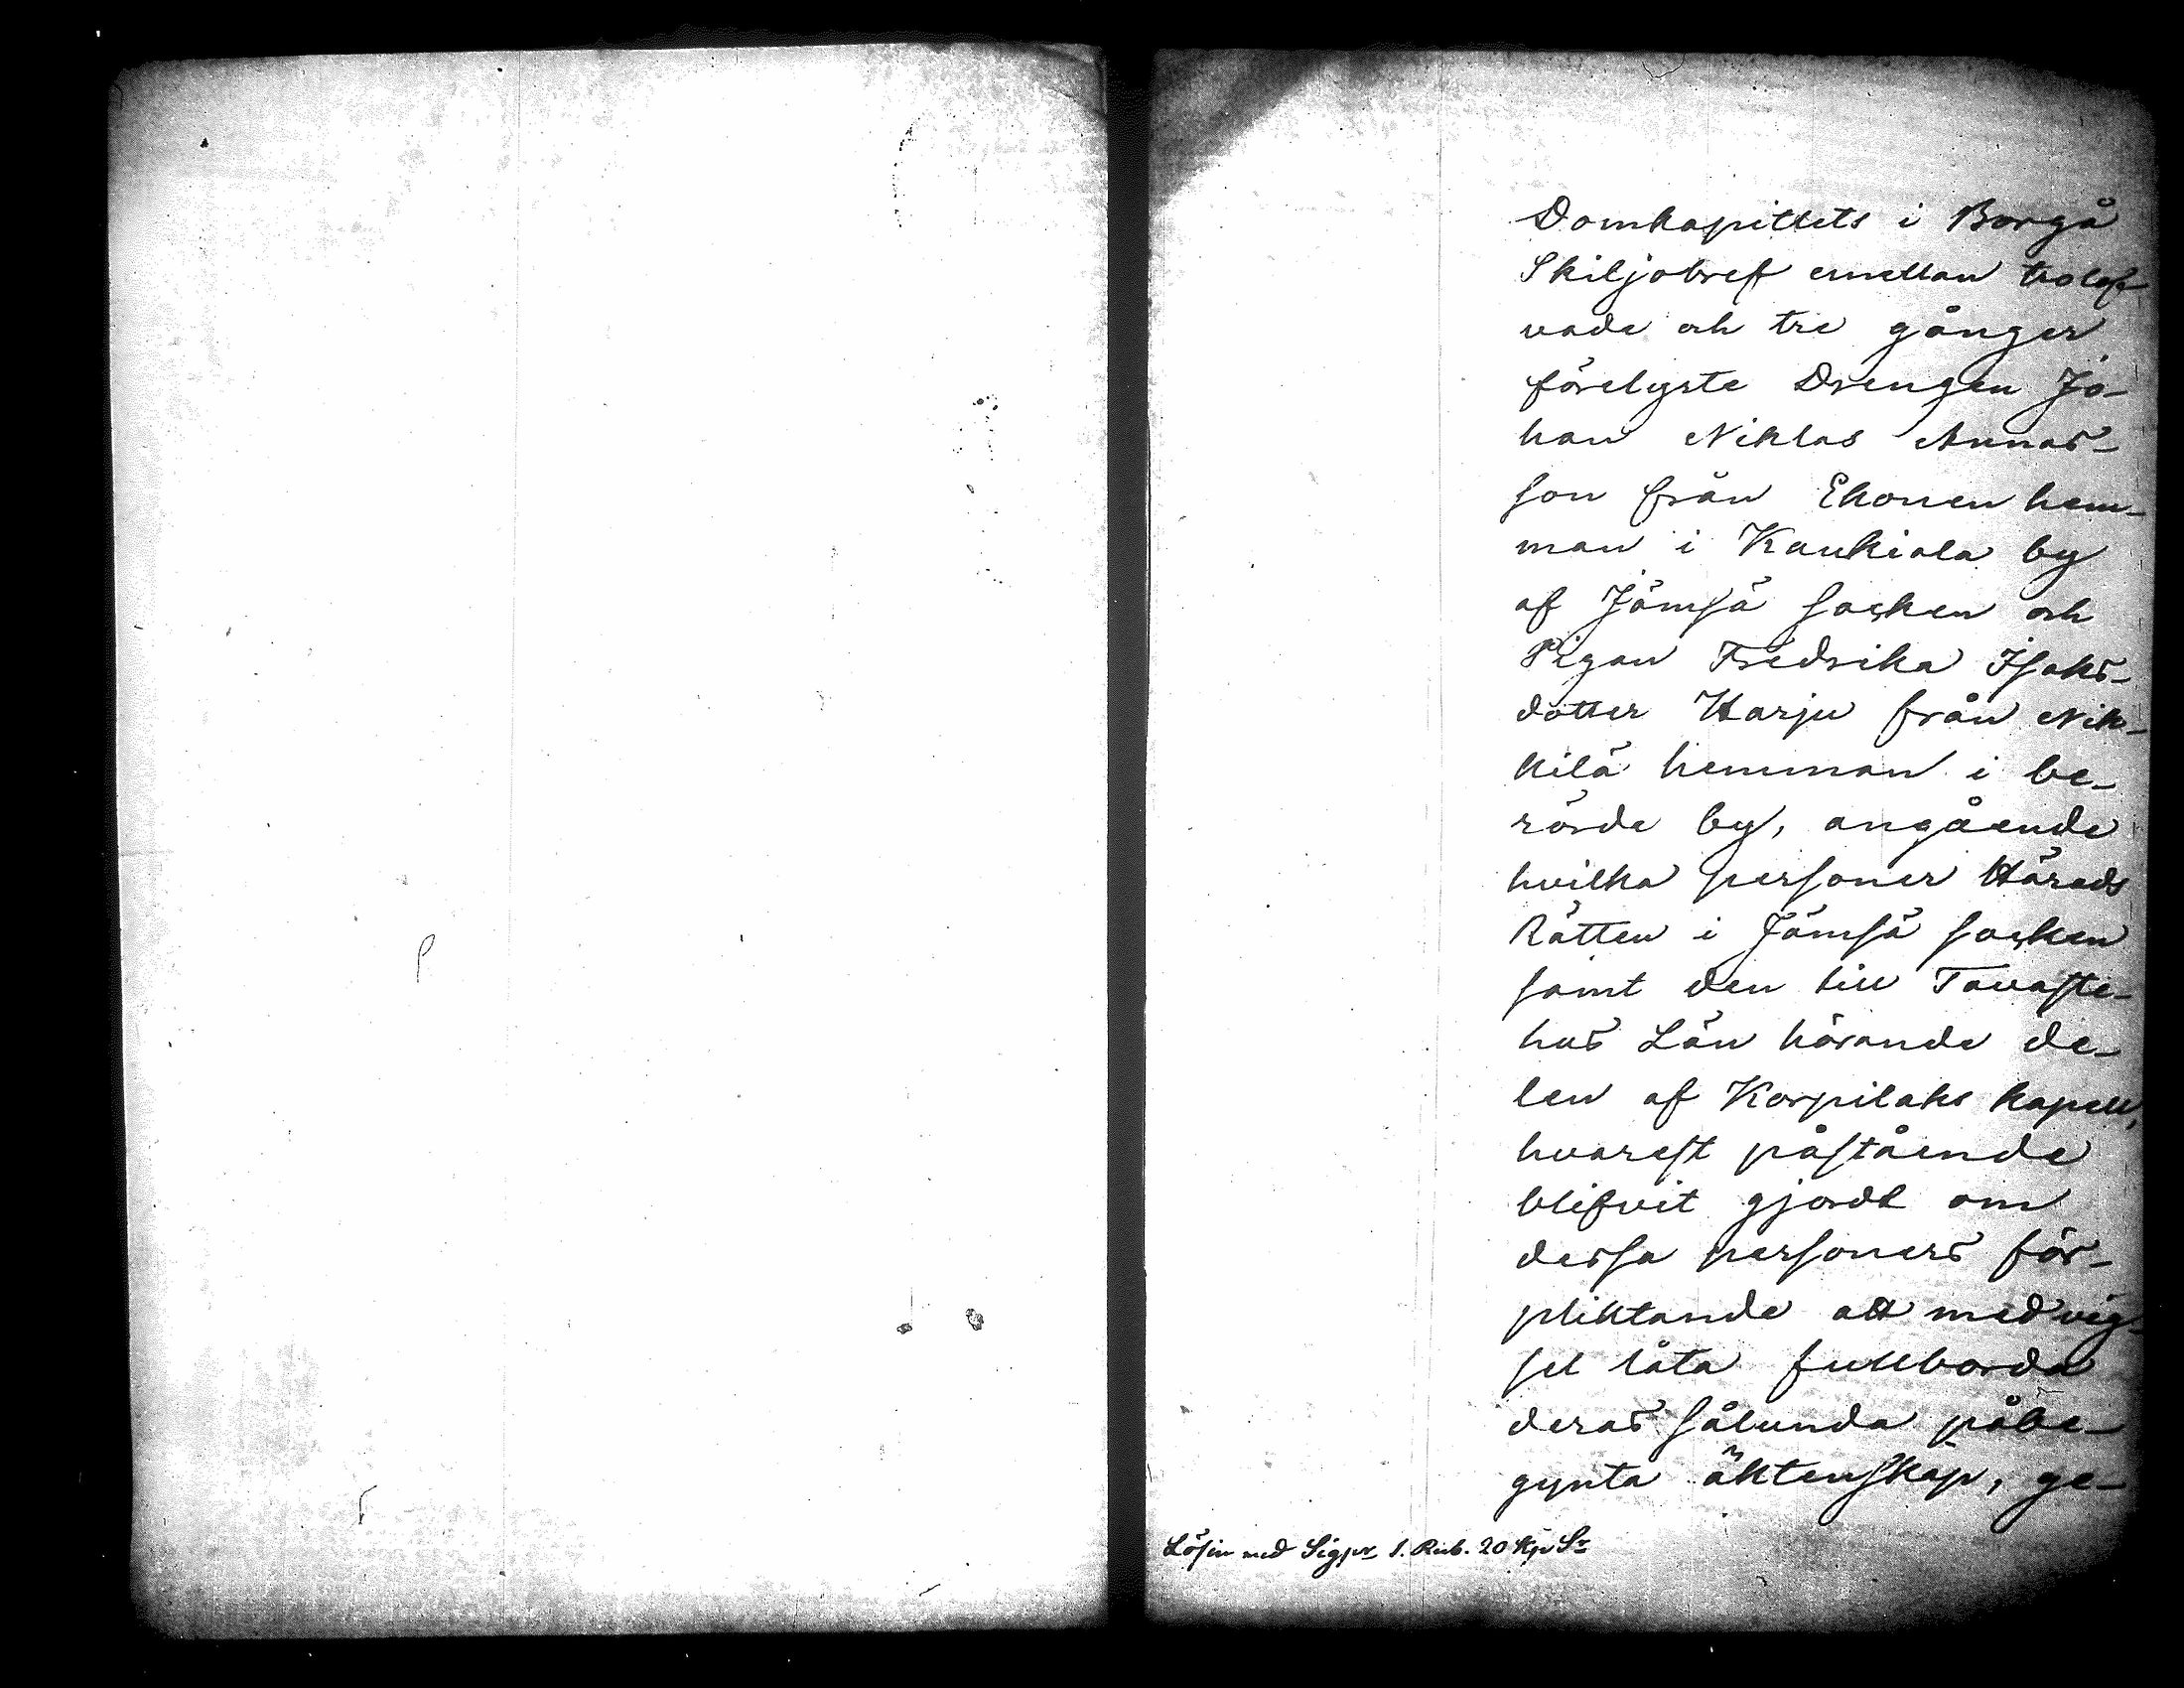 Domkapitlets i Borgå
Skiljobref emellan trolof-
vade och tre gånger
förelyste Drengen Jo-
han Niklas Annas-
son från Ekonen hem-
man i Kaukiala by
af Jämsä socken och
Pigan Fredrika Isaks-
dotter Harju från Nik-
kilä hemman i be-
rörde by, angående
hvilka personer Härads
Rätten i Jämsä socken
samt den till Tavaste-
hus Län hörande de-
len af Korpilaks kapell,
hvarest påstående
blifvit gjordt om
dessa personers för-
pliktande att med vig-
sel låta fullborda
deras sålunda påbe-
gynta äktenskap, ge-
Lösin med Sigpr 1. Rub. 20 Kp Sr